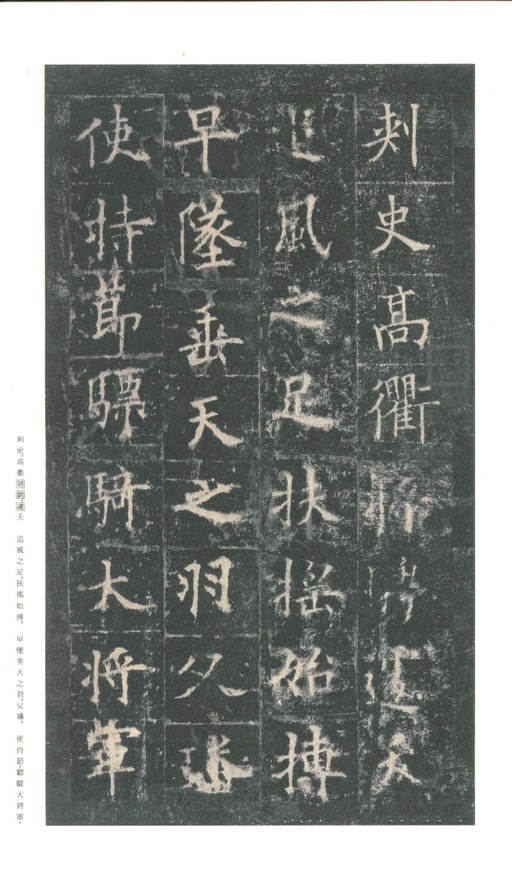 刺史高衢將騁遽夭
追風之足扶搖始搏
早墜垂天之羽父璠
使持節驃騎大將軍
刺史。高衢將騁。遽夭 追風之足。扶搖始搏。早墜垂天之羽。父璠。使持節。驃騎大將軍。